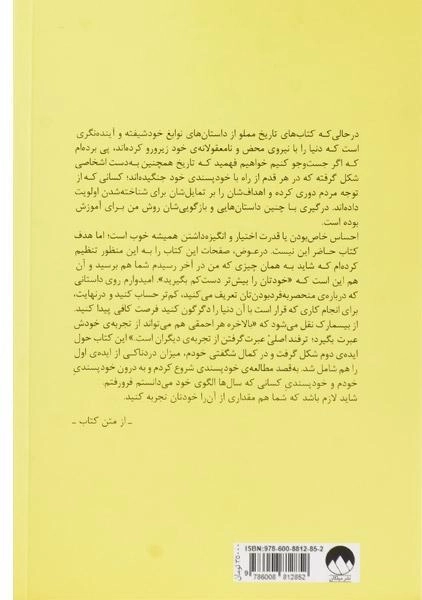 درحالی‌که کتاب‌های تاریخ مملو از داستان‌های نوابغ خودشیفته و آینده‌نگری
است که دنیا را با نیروی محض و نامعقولانه‌ی خود زیرورو کرده‌اند، پی برده‌ام
که اگر جست‌وجو کنیم خواهیم فهمید که تاریخ همچنین به‌دست اشخاصی
شکل گرفته که در هر قدم از راه با خودپسندی خود جنگیده‌اند؛ کسانی که از
توجه مردم دوری کرده و اهداف‌شان را بر تمایل‌شان برای شناخته‌شدن اولویت
داده‌اند. درگیری با چنین داستان‌هایی و بازگویی‌شان روش من برای آموزش
بوده است.
احساس خاص‌بودن یا قدرت اختیار و انگیزه‌داشتن همیشه خوب است؛ اما هدف
کتاب حاضر این نیست. درعوض، صفحات این کتاب را به این منظور تنظیم
کرده‌ام که شاید به همان چیزی که من در آخر رسیدم شما هم برسید و آن
هم این است که «خودتان را بیش‌تر دست‌کم بگیرید». امیدوارم روی داستانی
که درباره‌ی منحصربه‌فردبودن‌تان تعریف می‌کنید، کم‌تر حساب کنید و درنهایت،
برای انجام کاری که قرار است با آن دنیا را دگرگون کنید فرصت کافی پیدا کنید.
از بیسمارک نقل می‌شود که «بالاخره هر احمقی هم می‌تواند از تجربه‌ی خودش
عبرت بگیرد؛ ترفند اصلیْ عبرت‌گرفتن از تجربه‌ی دیگران است.» این کتاب حول
ایده‌ی دوم شکل گرفت و در کمال شگفتی خودم، میزان دردناکی از ایده‌ی اول
را هم شامل شد. به‌قصد مطالعه‌ی خودپسندی شروع کردم و به درون خودپسندی
خودم و خودپسندی کسانی که سال‌ها الگوی خود می‌دانستم فرورفتم.
شاید لازم باشد که شما هم مقداری از آن‌را خودتان تجربه کنید.
ـ از متن کتاب ـ
ISBN:978-600-8812-85-2
9 786008 812852
۳۵۰۰۰ تومان
نشر میلکان